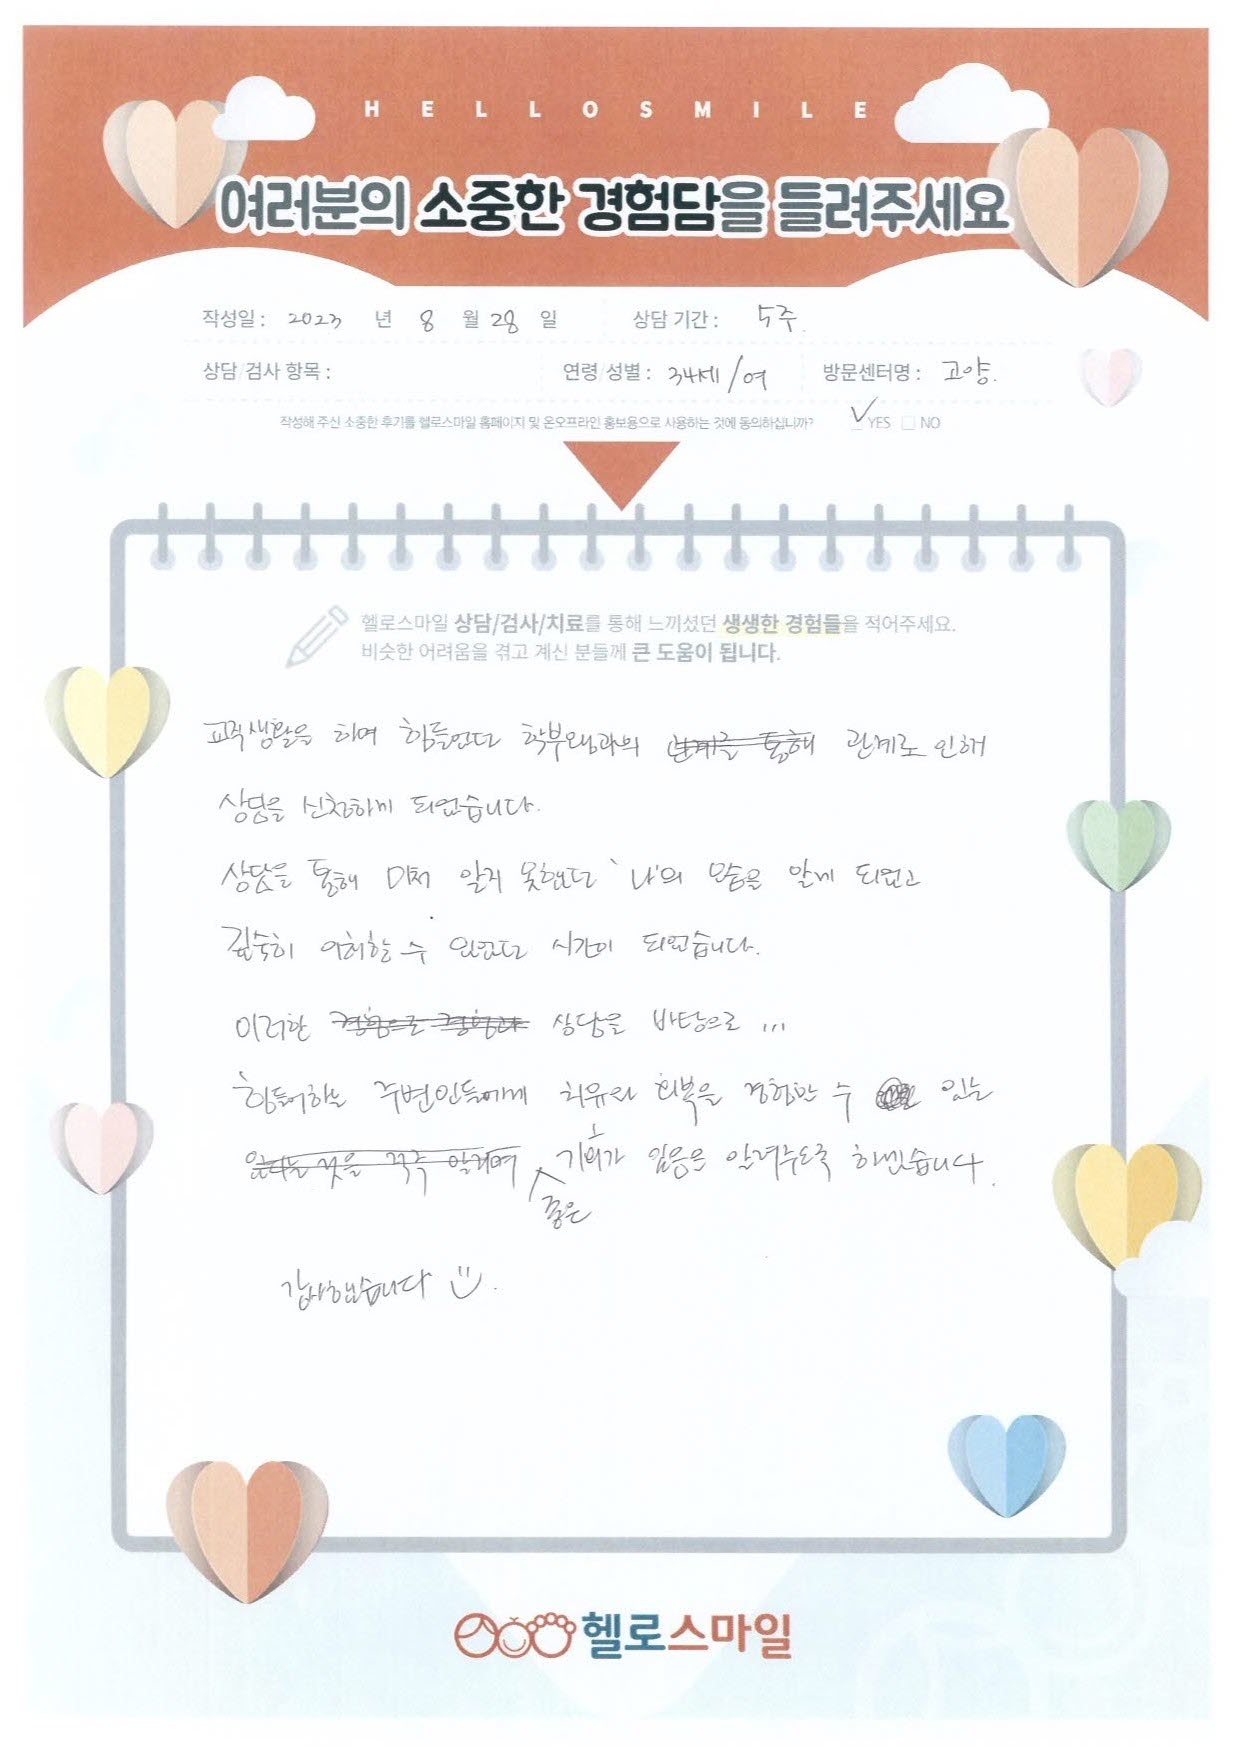 HELLOSMILE
여러분의 소중한 경험담을 들려주세요
작성일 : 2023 년 8 월 28 일 상담 기간 : 5주.
상담/검사 항목 : 연령/성별 : 34세/여 방문센터명 : 고양.
작성해 주신 소중한 후기를 헬로스마일 홈페이지 및 온오프라인 홍보용으로 사용하는 것에 동의하십니까? YES NO
헬로스마일 상담/검사/치료를 통해 느끼셨던 생생한 경험들을 적어주세요.
비슷한 어려움을 겪고 계신 분들께 큰 도움이 됩니다.
교직생활을 하며 힘들었던 학부모님과의 관계로 인해
상담을 신청하게 되었습니다.
상담을 통해 미처 알지 못했던 '나'의 모습을 알게 되었고
깊숙히 이해할 수 있었던 시간이 되었습니다.
이러한 상담을 바탕으로 ...
힘들어하는 주변인들에게 치유와 회복을 경험할 수 있는
좋은 기회가 있음을 알려주도록 하겠습니다.
감사했습니다 .
헬로스마일